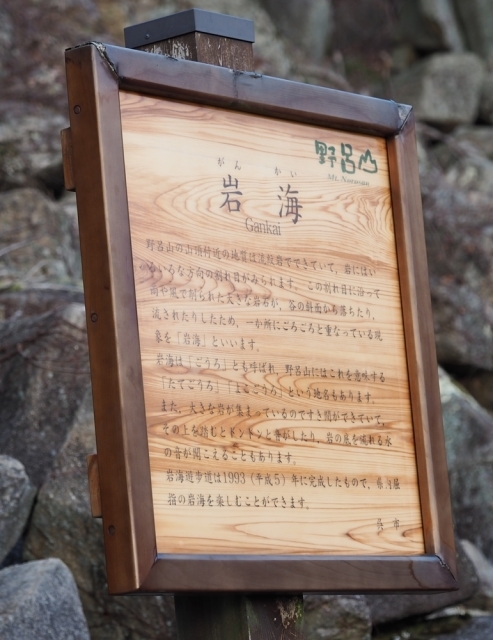 野呂山
Mt. Norosan
がん かい
岩海
Gankai
野呂山の山頂付近の地質は流紋岩でできていて、岩にはい
ろいろな方向の割れ目がみられます。この割れ目に沿って
雨や風で削られた大きな岩石が、谷の斜面から落ちたり、
流されたりしたため、一か所にごろごろと重なっている現
象を「岩海」といいます。
岩海は「ごうろ」とも呼ばれ、野呂山にはこれを意味する
「たてごうろ」「よこごうろ」という地名もあります。
また、大きな岩が集まっているのですき間ができていて、
その上を踏むとドンドンと音がしたり、岩の底を流れる水
の音が聞こえることもあります。
岩海遊歩道は1993(平成5)年に完成したもので、県内屈
指の岩海を楽しむことができます。
呉市